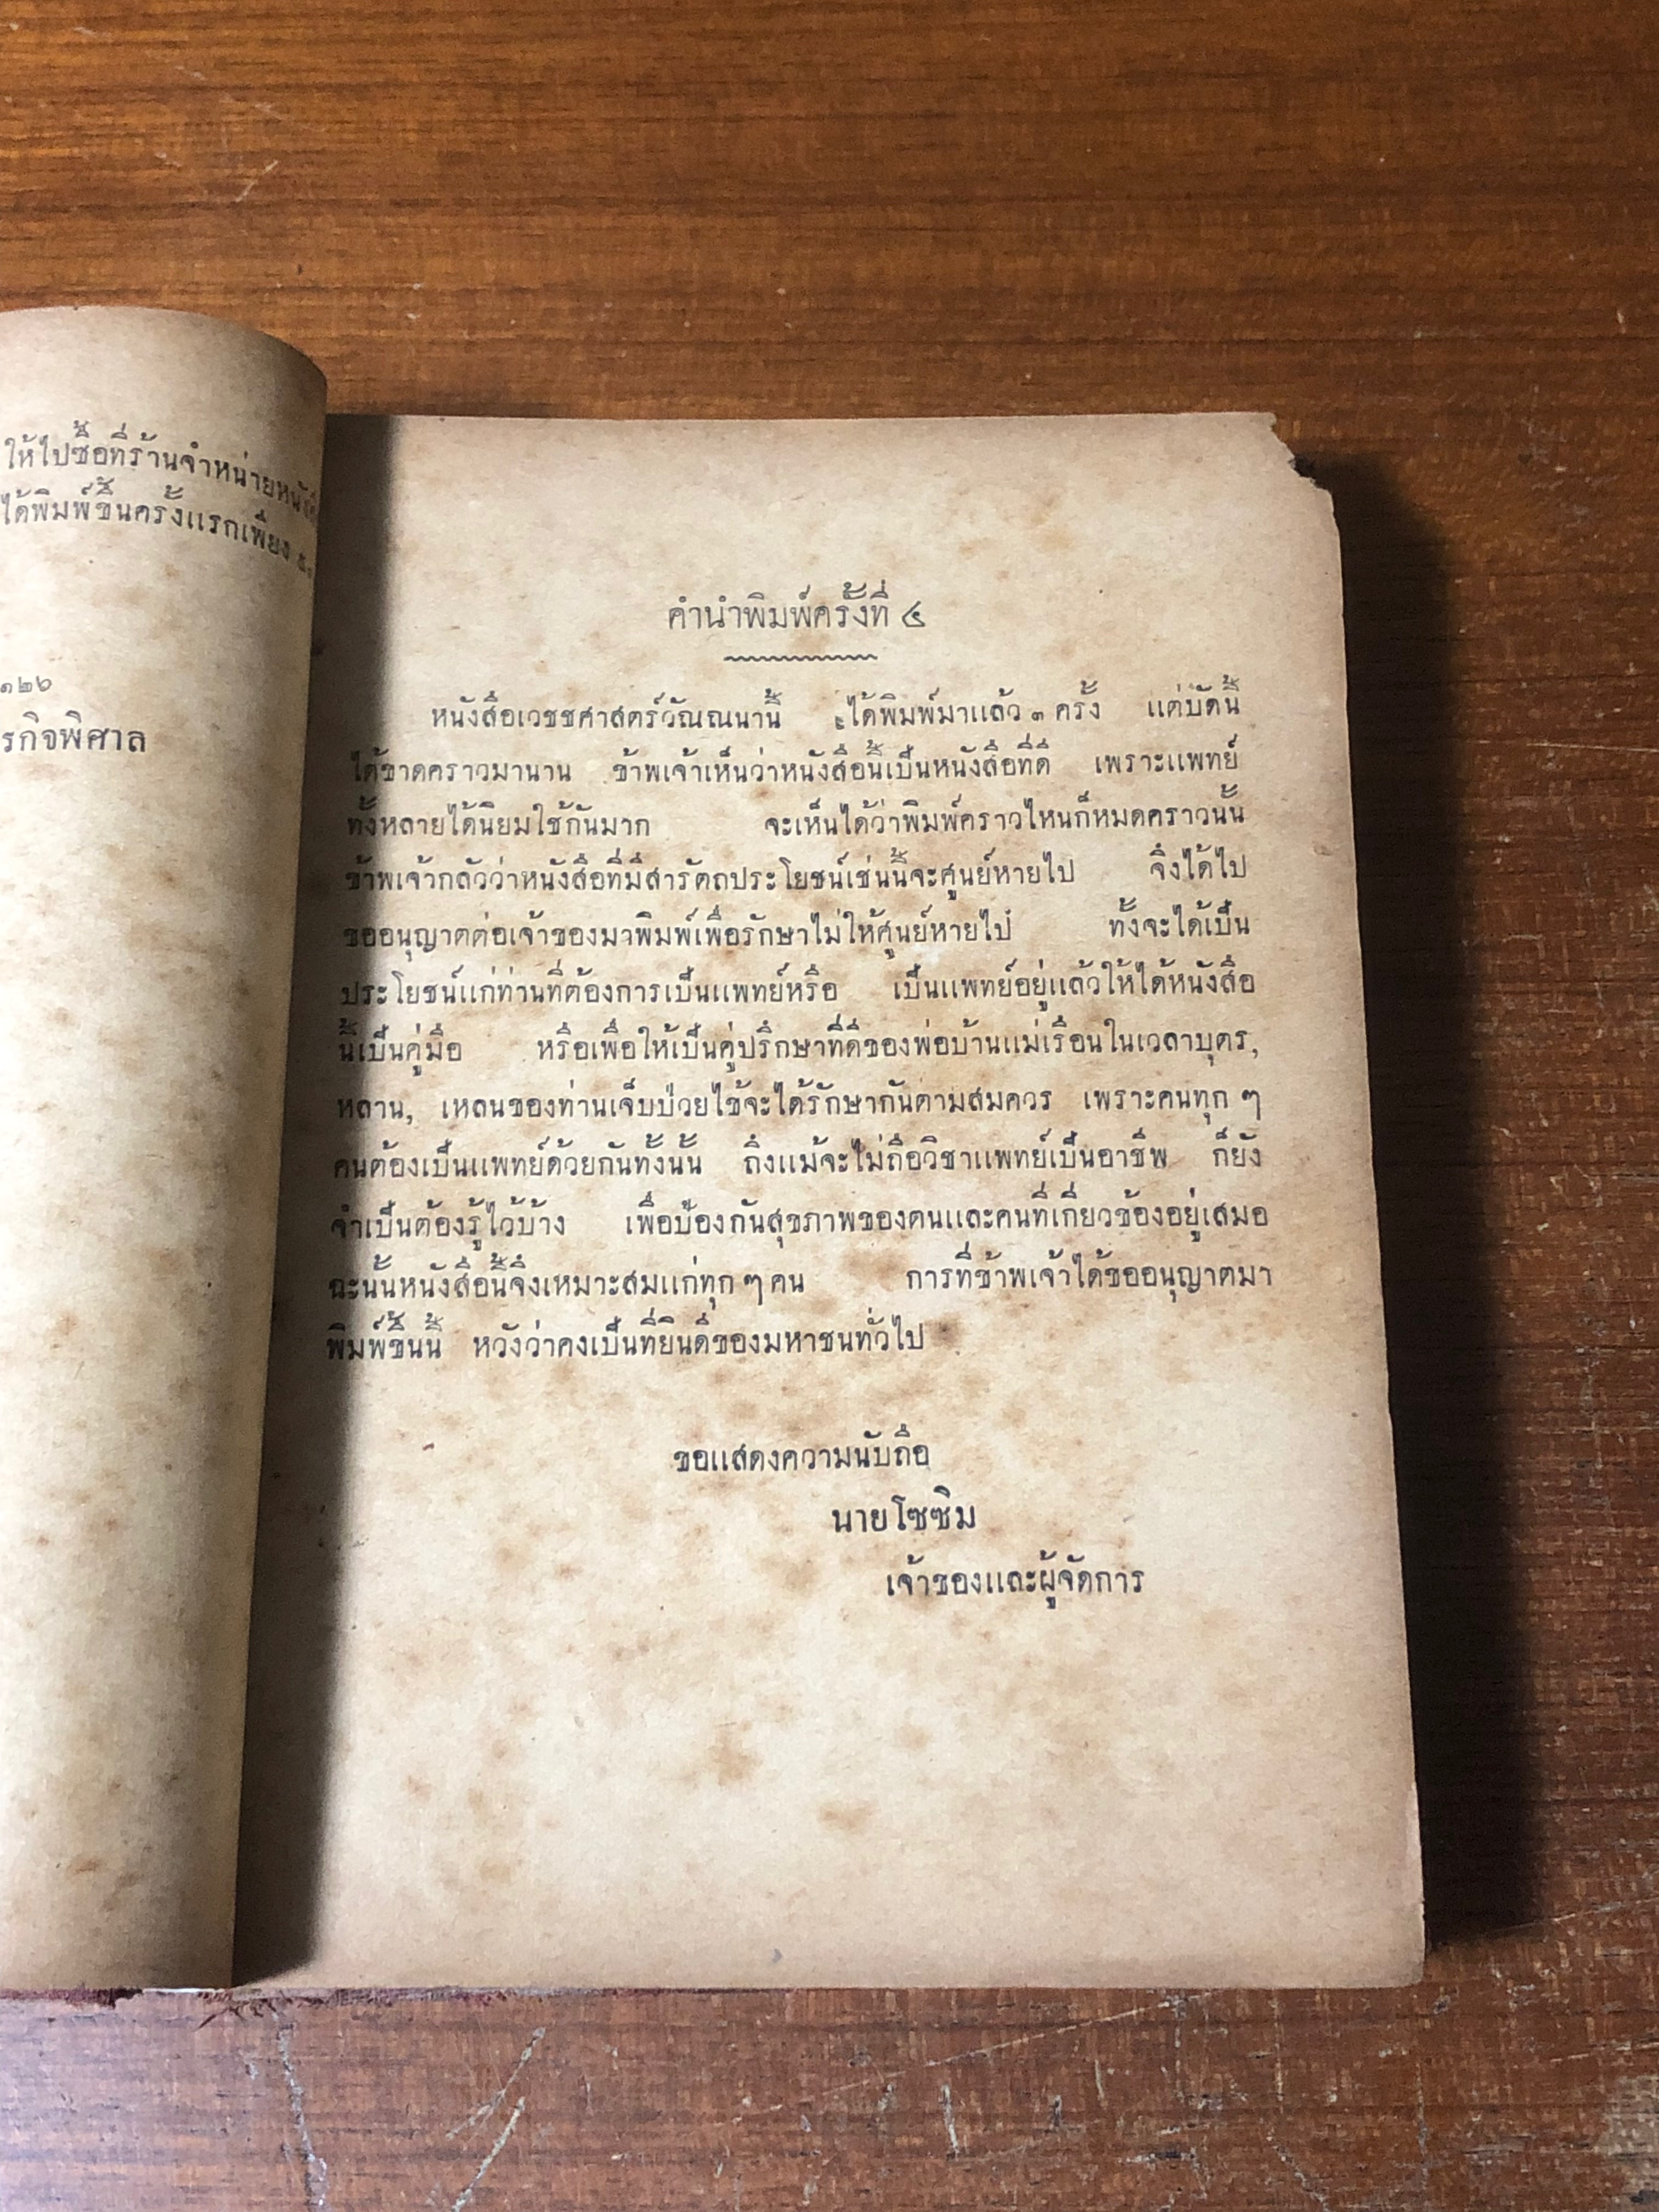 ให้ไปซื้อที่ร้านจำหน่ายหนัง
ได้พิมพ์ขึ้นครั้งแรกเพียง
๑๒๖
รกิจพิศาล
คำนำพิมพ์ครั้งที่ ๔
หนังสือเวชชศาสตร์วัณณนานี้ ได้พิมพ์มาแล้ว ๓ ครั้ง แต่บัดนี้
ได้ขาดคราวมานาน ข้าพเจ้าเห็นว่าหนังสือนี้เป็นหนังสือที่ดี เพราะแพทย์
ทั้งหลายได้นิยมใช้กันมาก จะเห็นได้ว่าพิมพ์คราวไหนก็หมดคราวนั้น
ข้าพเจ้ากลัวว่าหนังสือที่มีสารัตถประโยชน์เช่นนี้จะศูนย์หายไป จึงได้ไป
ขออนุญาตต่อเจ้าของมาพิมพ์เพื่อรักษาไม่ให้ศูนย์หายไป ทั้งจะได้เป็น
ประโยชน์แก่ท่านที่ต้องการเป็นแพทย์หรือ เป็นแพทย์อยู่แล้วให้ได้หนังสือ
นี้เป็นคู่มือ หรือเพื่อให้เป็นคู่ปรึกษาที่ดีของพ่อบ้านแม่เรือนในเวลาบุตร,
หลาน, เหลนของท่านเจ็บป่วยไข้จะได้รักษากันตามสมควร เพราะคนทุก ๆ
คนต้องเป็นแพทย์ด้วยกันทั้งนั้น ถึงแม้จะไม่ถือวิชาแพทย์เป็นอาชีพ ก็ยัง
จำเป็นต้องรู้ไว้บ้าง เพื่อป้องกันสุขภาพของตนและคนที่เกี่ยวข้องอยู่เสมอ
ฉะนั้นหนังสือนี้จึงเหมาะสมแก่ทุก ๆ คน การที่ข้าพเจ้าได้ขออนุญาตมา
พิมพ์ขึ้นนี้ หวังว่าคงเป็นที่ยินดีของมหาชนทั่วไป
ขอแสดงความนับถือ
นายโซซิม
เจ้าของและผู้จัดการ